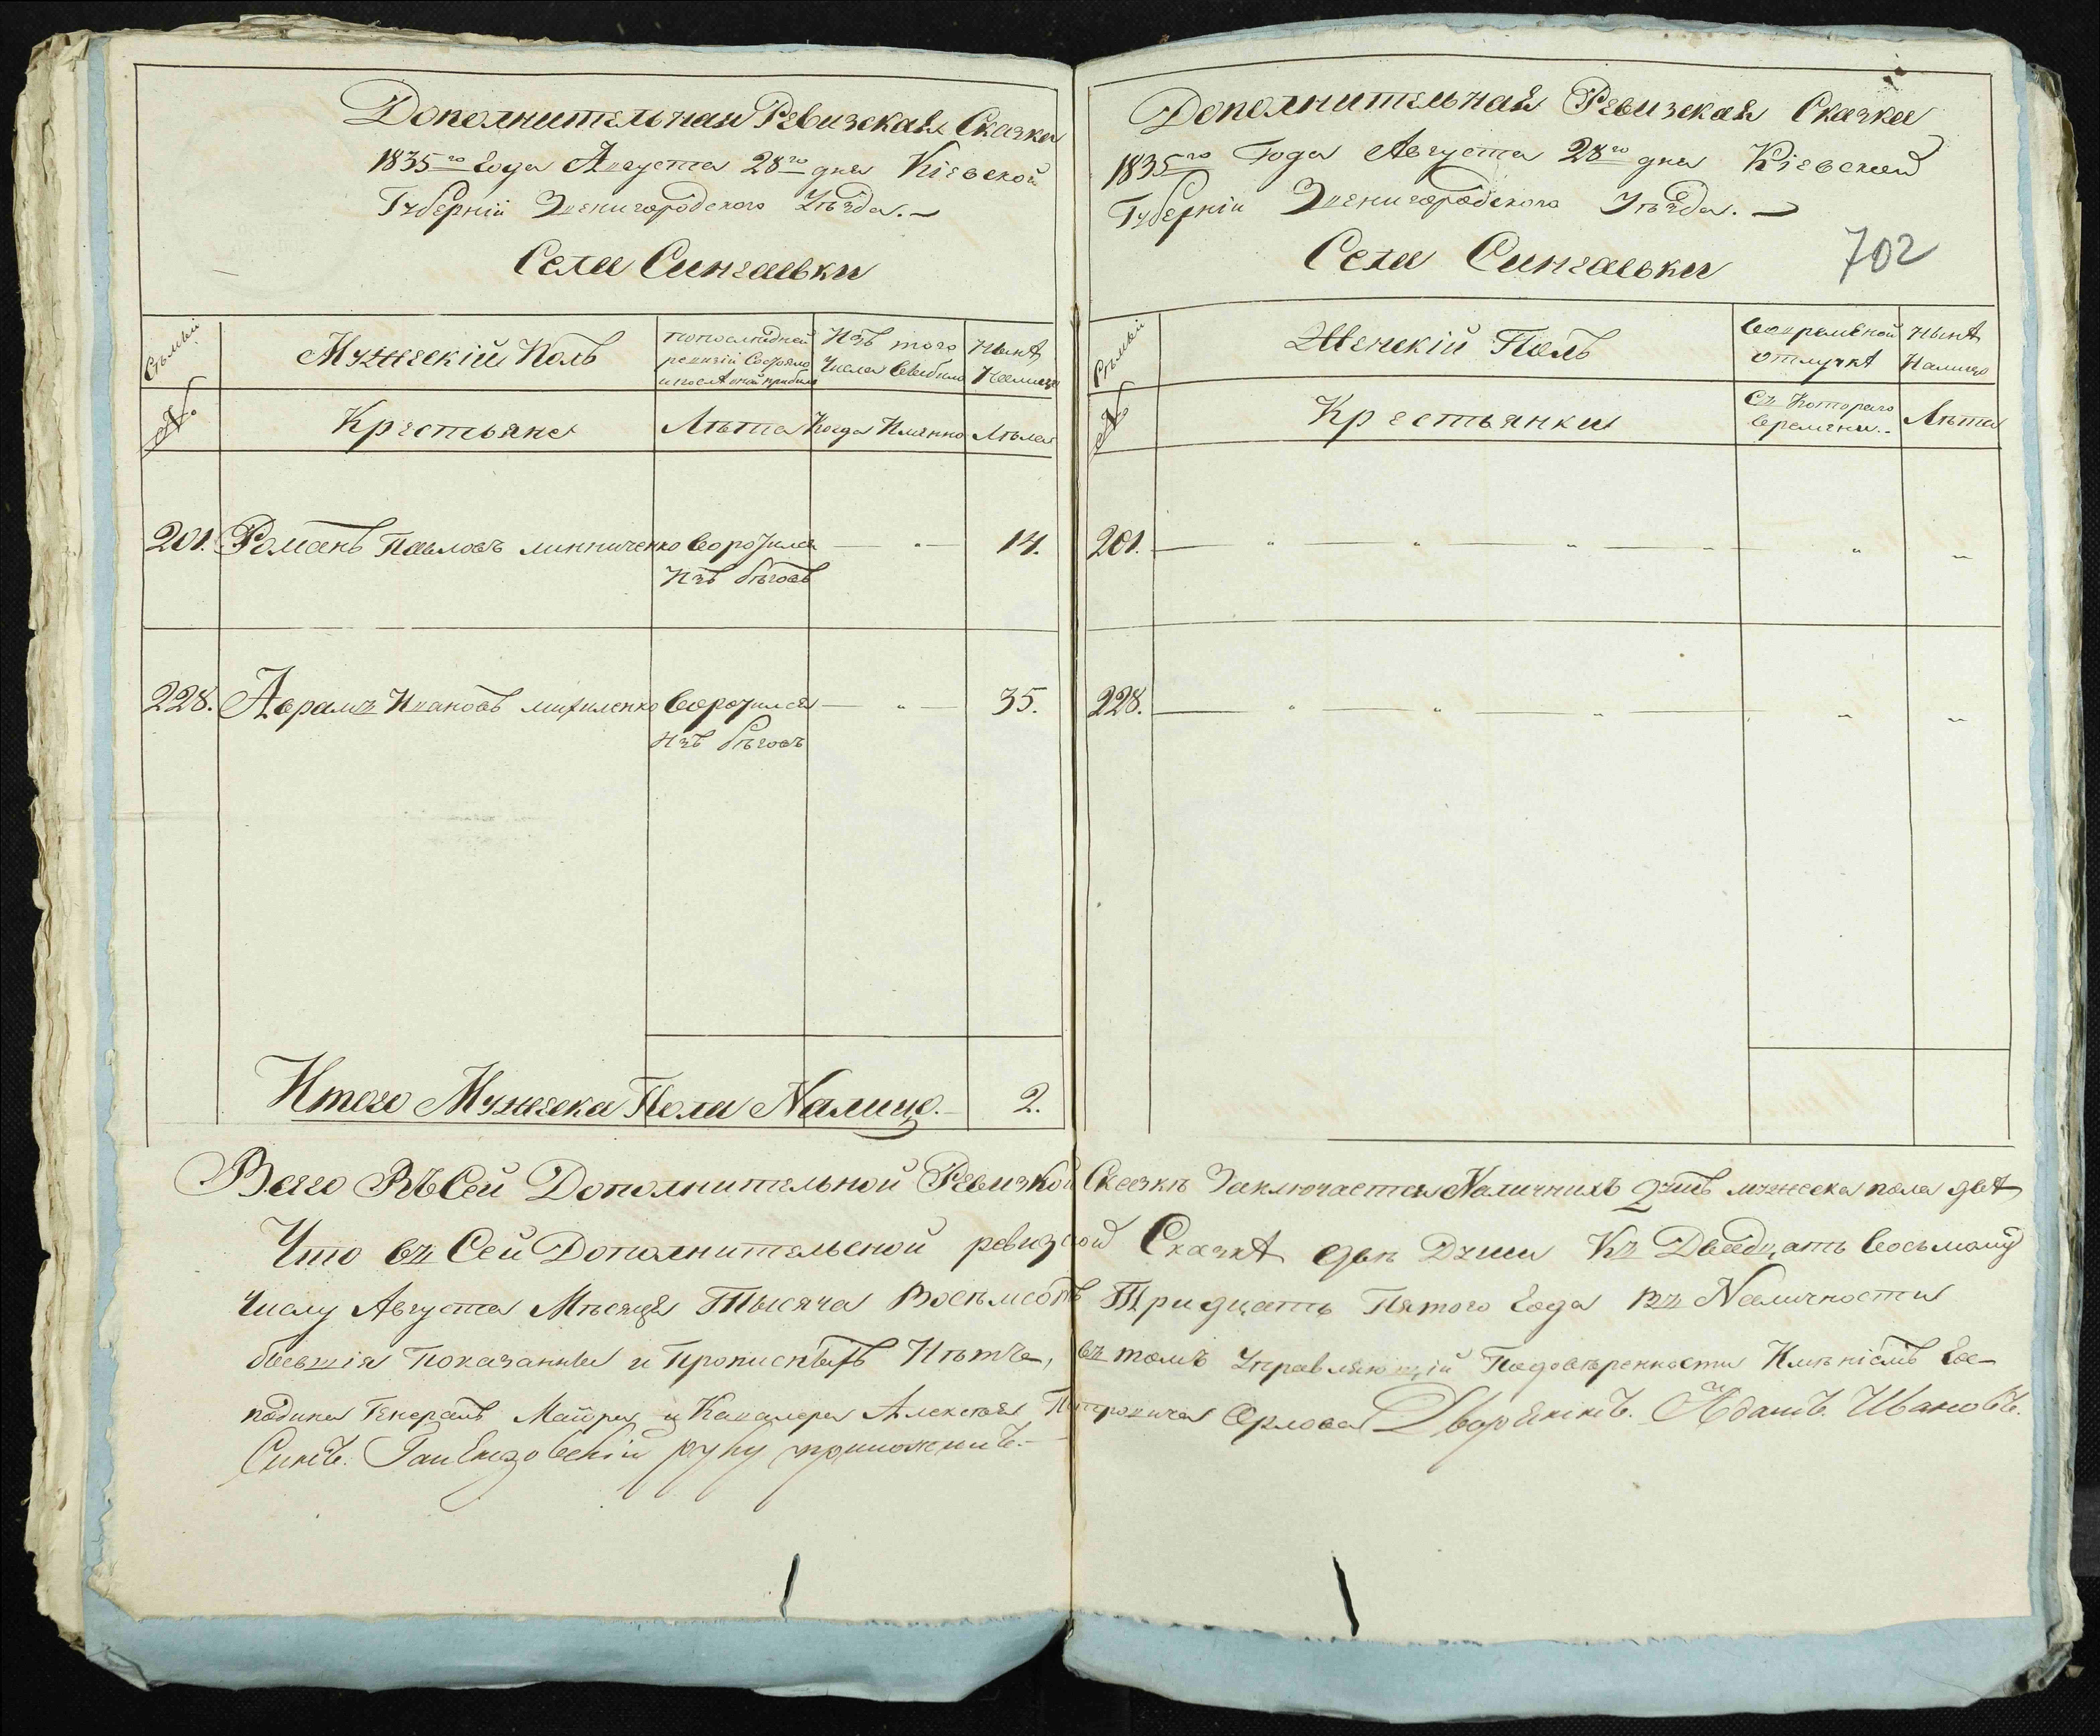 Дополнительная Ревизская Сказка
1835го Года Августа 28го дня Кіевской
Губерніи Звенигородского Уѣзда.
Села Сингаевки
Семьи
Мужескій Полъ
попоследней
ревизій Состояло
и после оной прибыло
Изъ того
Числа Выбыло
Нынѣ
Налицо
№.
Крестьяне
Лѣта
Когда Именно
Лѣта
201.
Романъ Павловъ линниченко
Воротился
14.
Изъ бѣговъ
228.
Аврамъ Ивановъ михиленко
Воротился
35.
Изъ бѣговъ
Итого Мужеска Пола Налицо.
2.
Дополнительная Ревизская Сказка
1835го Года Августа 28го дня Кіевской
Губерніи Звенигородского Уѣзда.
Села Сингаевки
702
Семьи
Женскій Полъ
Вовременой
отлучкѣ
Нынѣ
Налицо
№
Крестьянки
Съ Котораго
Времени
Лѣта
201.
228.
Всего ВЪ Сей Дополнительной Ревизкой Сказкѣ Заключается Наличнихъ душъ мужеска пола двѣ
Что въ Сей Дополнительсной ревизской Сказкѣ двѣ Души Къ Двадцать Восьмому
Числу Августа Мѣсяца Тысяча Восѣмсотъ Тридцать Пятого Года Въ Наличности
бывшія Показанны и Прописныхъ Нѣтъ, въ томъ Управляющій Подовѣренности Имѣніемъ Гос-
подина Генералъ Маіора и Кавалера Алексѣя Петровича Орлова Дворянинъ. Адамъ. Ивановъ.
Сынъ. руку приложилъ.